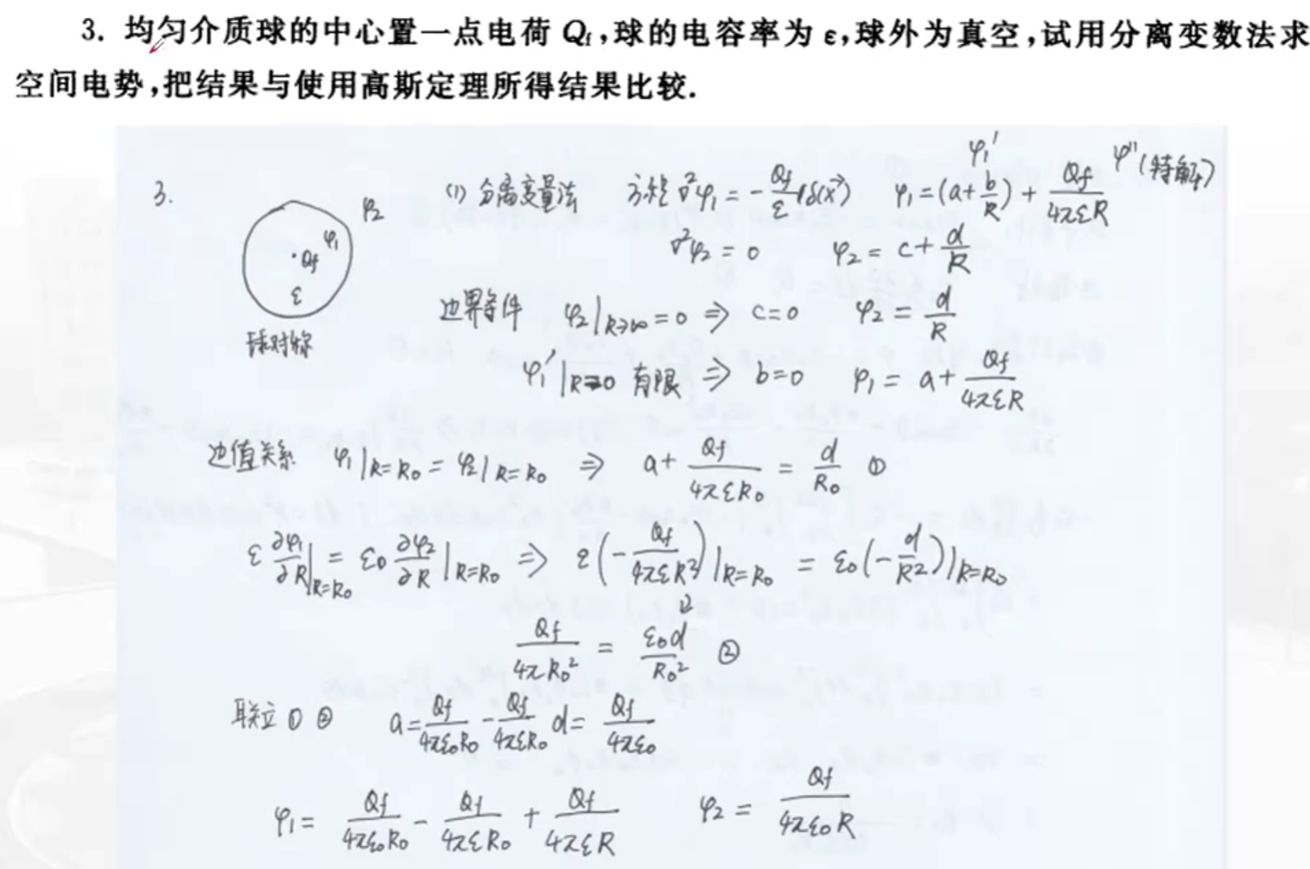 3. 均匀介质球的中心置一点电荷 Qf,球的电容率为 ε,球外为真空,试用分离变数法求
空间电势,把结果与使用高斯定理所得结果比较.
3. (1) 分离变量法 方程 ∇²φ₁ = -Qf/ε δ(x⃗) φ₁ = (a + b/R) + Qf/4πεR φ₁' φ''(特解)
φ₂ φ₁ ·Qf ε
∇²φ₂ = 0 φ₂ = c + d/R
边界条件 φ₂|R→∞ = 0 ⇒ c=0 φ₂ = d/R
球对称
φ₁'|R→0 有限 ⇒ b=0 φ₁ = a + Qf/4πεR
边值关系 φ₁|R=R₀ = φ₂|R=R₀ ⇒ a + Qf/4πεR₀ = d/R₀ ①
ε ∂φ₁/∂R|R=R₀ = ε₀ ∂φ₂/∂R|R=R₀ ⇒ ε(-Qf/4πεR²)|R=R₀ = ε₀(-d/R²)|R=R₀
⇓
Qf/4πR₀² = ε₀d/R₀² ②
联立 ① ② a = Qf/4πε₀R₀ - Qf/4πεR₀ d = Qf/4πε₀
φ₁ = Qf/4πε₀R₀ - Qf/4πεR₀ + Qf/4πεR φ₂ = Qf/4πε₀R